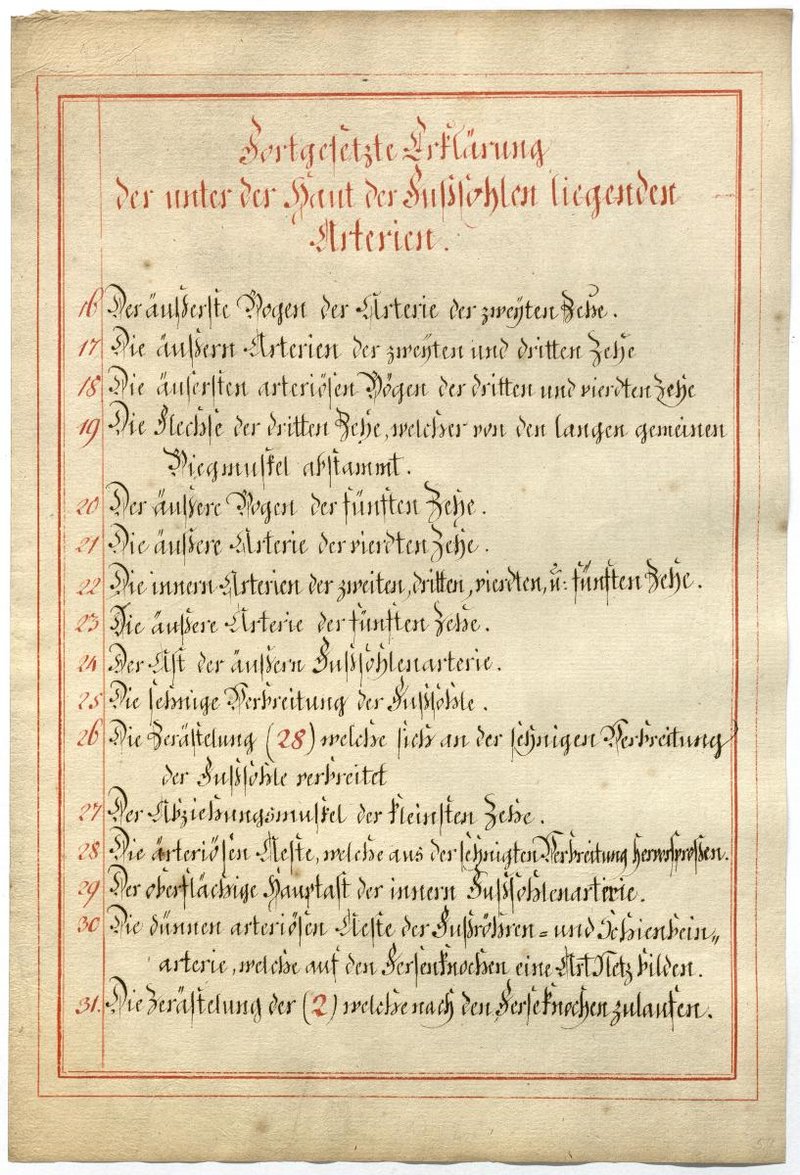 Fortgesetzte Erklärung
der unter der Haut der Fußsohlen liegenden
Arterien.
16 Der äußerste Bogen der Arterie der zweyten Zehe.
17 Die äußern Arterien der zweyten und dritten Zehe
18 Die äusersten arteriösen Bögen der dritten und vierdten Zehe
19 Die Flechse der dritten Zehe, welcher von den langen gemeinen
Biegmuskel abstammt.
20 Der äußere Bogen der fünften Zehe.
21 Die äußere Arterie der vierdten Zehe.
22 Die innern Arterien der zweiten, dritten, vierdten, u: fünften Zehe.
23 Die äußere Arterie der fünften Zehe.
24 Der Ast der äußern Fußsohlenarterie.
25 Die sehnige Verbreitung der Fußsohle.
26 Die Zerästelung (28) welche sich an der sehnigen Verbreitung
der Fußsohle verbreitet
27 Der Abziehungsmuskel der kleinsten Zehe.
28 Die arteriösen Aeste, welche aus der sehnigten Verbreitung hervorsproßen.
29 Der oberflächige Hauptast der innern Fußsohlenarterie.
30 Die dünnen arteriösen Aeste der Fußröhren = und Schienbein„
arterie, welche auf den Fersenknochen eine Art Netz bilden.
31. Die Zerästelung der (2) welche nach den Ferseknochen zulaufen.